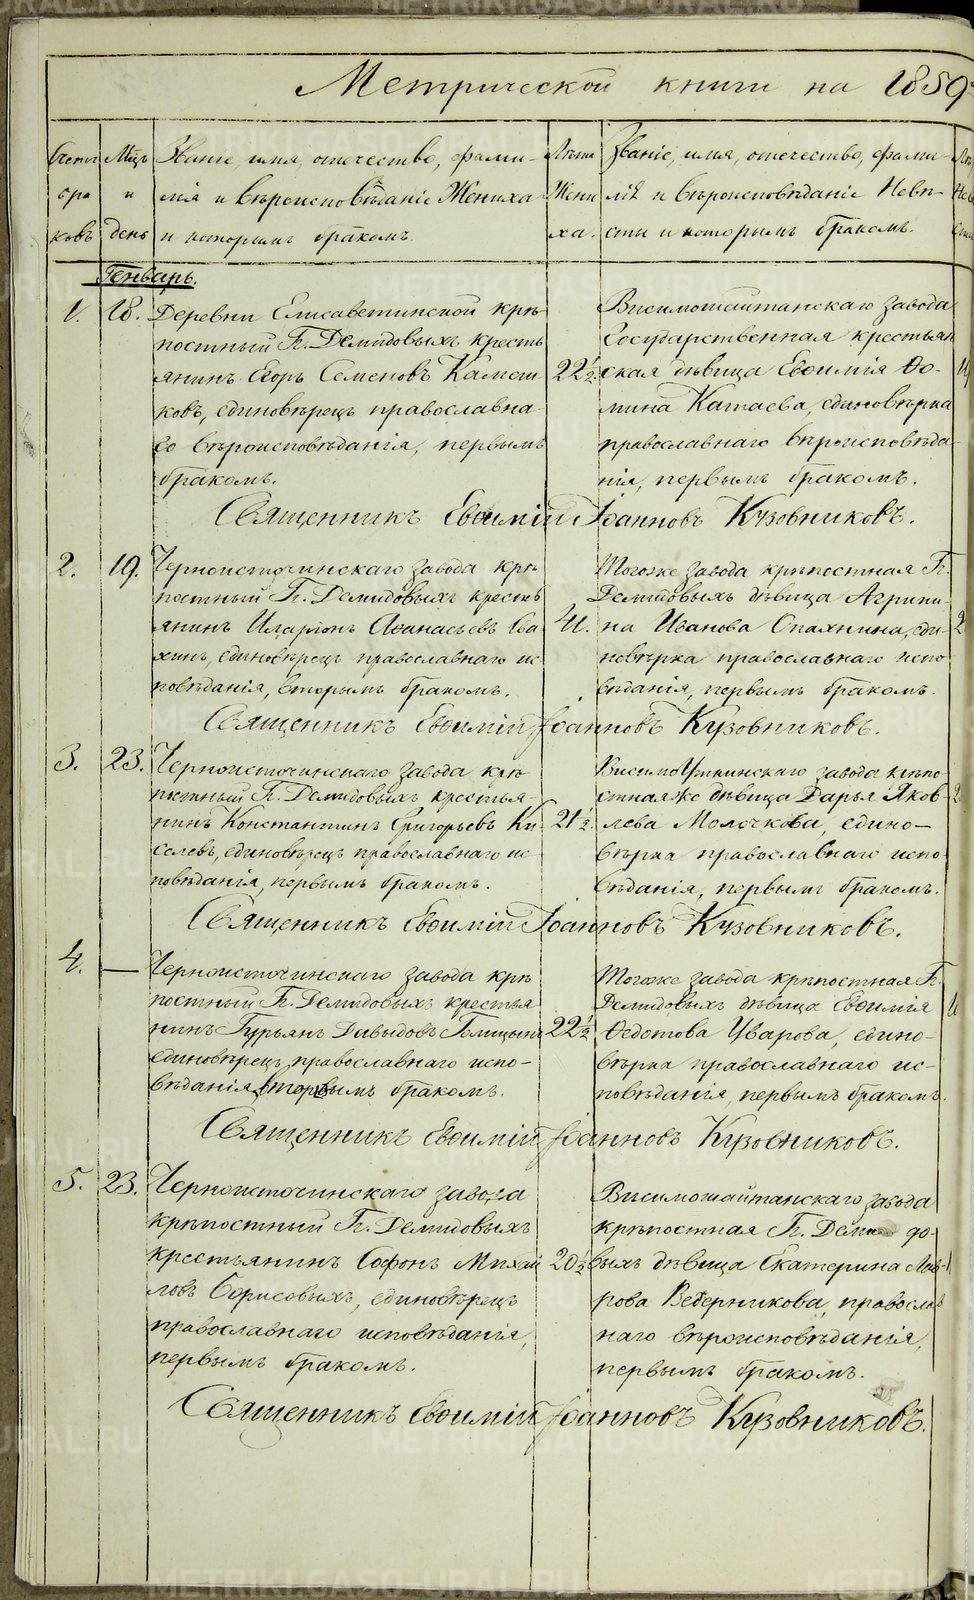 Метрической книги на 1859
Счетъ
бра
ковъ
Мцъ
и
день
Званіе имя, отечество, фами-
лія и вѣроисповѣданіе Жениха
и которымъ бракомъ.
Лѣта
Жени
ха.
Званіе, имя, отечество, фами-
лія и вѣроисповѣданіе Невѣ-
сты и которымъ бракомъ.
Генварь.
1. 18. Деревни Елисаветинской крѣ-
постный Г. Демидовыхъ кресть
янинъ Егоръ Семеновъ
ковъ, единовѣрецъ православна-
го вѣроисповѣданія, первымъ
бракомъ.
22½.
Висимошайтанскаго завода
Государственная крестьян
ская дѣвица Евѳимія Ѳо-
мина Катаева, единовѣрка
православнаго вѣроисповѣда-
нія, первымъ бракомъ.
Священникъ Евѳимій Іоанновъ Кузовниковъ.
2. 19. Черноисточинскаго завода крѣ-
постный Г. Демидовыхъ кресть
янинъ Иларіонъ Аѳанасьевъ
единовѣрецъ православнаго ис
повѣданія, вторымъ бракомъ.
41.
Тогоже завода крѣпостная Г.
Демидовыхъ дѣвица Агрипи-
на Иванова еди-
новѣрка православнаго испо
вѣданія, первымъ бракомъ.
Священникъ Евѳимій Іоанновъ Кузовниковъ.
3. 23. Черноисточинскаго завода крѣ
постный Г. Демидовыхъ крестья-
нинъ Константинъ Григорьевъ Ки-
селевъ, единовѣрецъ православнаго ис-
повѣданія, первымъ бракомъ.
21½.
ВисимоУткинскаго завода крѣпо-
стнаяже дѣвица Дарья Яков
лева Молочкова, едино-
вѣрка православнаго испо
вѣданія, первымъ бракомъ.
Священникъ Евѳимій Іоанновъ Кузовниковъ.
4. — Черноисточинскаго завода крѣ
постный Г. Демидовыхъ крестья
нинъ Гурьянъ Давыдовъ
единовѣрецъ православнаго испо-
вѣданія бракомъ.
22½
Тогоже завода крѣпостная Г.
Демидовыхъ дѣвица Евѳимія
Ѳедотова Уварова, едино-
вѣрка православнаго ис-
повѣданія, первымъ бракомъ.
Священникъ Евѳимій Іоанновъ Кузовниковъ.
5. 23. Черноисточинскаго завода
крѣпостный Г. Демидовыхъ
крестьянинъ Софонъ Михай
ловъ Борисовыхъ, единовѣрецъ
православнаго исповѣданія,
первымъ бракомъ.
20½
Висимошайтанскаго завода
крѣпостная Г. Деми до-
выхъ дѣвица Екатерина Лав-
рова Ведерникова, православ
наго вѣроисповѣданія,
первымъ бракомъ.
Священникъ Евѳимій Іоанновъ Кузовниковъ.
METRIKI.GASO-URAL.RU